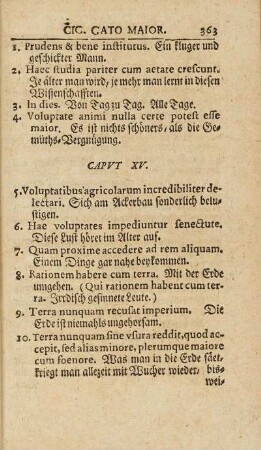 CIC. CATO MAIOR. 363
1. Prudens & bene institutus. Ein kluger und
geschickter Mann.
2. Haec studia pariter cum aetate crescunt.
Je älter man wird, je mehr man lernt in diesen
Wissenschafften.
3. In dies. Von Tag zu Tag. Alle Tage.
4. Voluptate animi nulla certe potest esse
maior. Es ist nichts schöners, als die Ge-
müths-Vergnügung.
CAPVT XV.
5. Voluptatibus agricolarum incredibiliter de-
lectari. Sich am Ackerbau sonderlich belu-
stigen.
6. Hae voluptates impediuntur senectute.
Diese Lust höret im Alter auf.
7. Quam proxime accedere ad rem aliquam.
Einem Dinge gar nahe beykommen.
8. Rationem habere cum terra. Mit der Erde
umgehen. (Qui rationem habent cum ter-
ra. Irrdisch gesinnete Leute.)
9. Terra nunquam recusat imperium. Die
Erde ist niemahls ungehorsam.
10. Terra nunquam sine vsura reddit, quod ac-
cepit, sed alias minore, plerumque maiore
cum foenore. Was man in die Erde säet,
kriegt man allezeit mit Wucher wieder, bis-
wei-